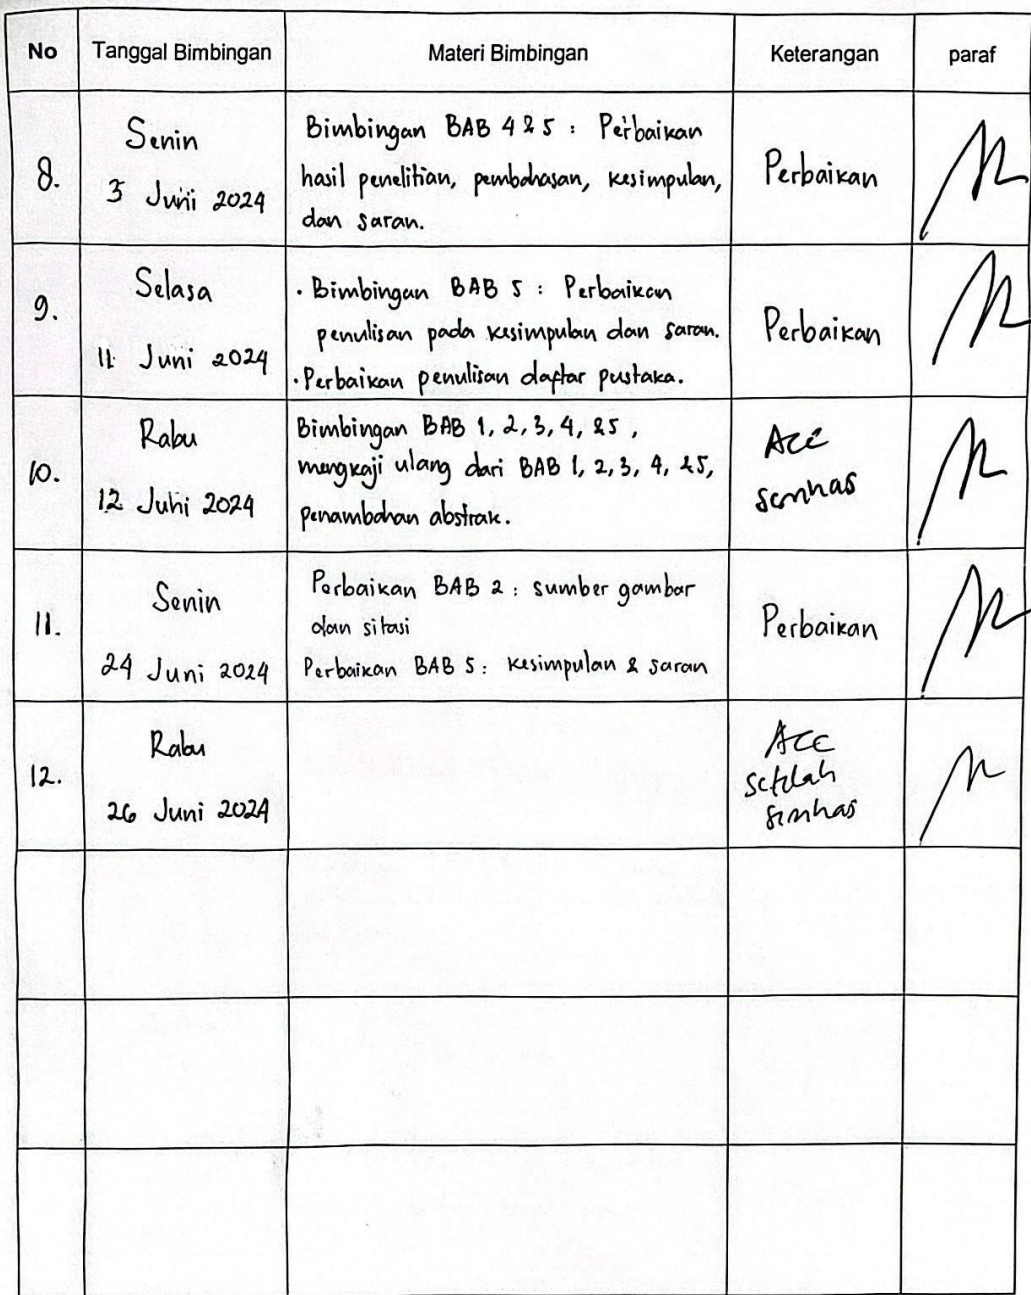 No Tanggal Bimbingan Materi Bimbingan Keterangan paraf
8.
Senin
3 Juni 2024
Bimbingan BAB 4 & 5 : Perbaikan
hasil penelitian, pembahasan, kesimpulan,
dan saran.
Perbaikan
9.
Selasa
11 Juni 2024
· Bimbingan BAB 5 : Perbaikan
penulisan pada kesimpulan dan saran.
· Perbaikan penulisan daftar pustaka.
Perbaikan
10.
Rabu
12 Juni 2024
Bimbingan BAB 1, 2, 3, 4, & 5 ,
mengkaji ulang dari BAB 1, 2, 3, 4, & 5,
penambahan abstrak.
Acc
semhas
11.
Senin
24 Juni 2024
Perbaikan BAB 2 : sumber gambar
dan sitasi
Perbaikan BAB 5 : kesimpulan & saran
Perbaikan
12.
Rabu
26 Juni 2024
ACC
setelah
semhas